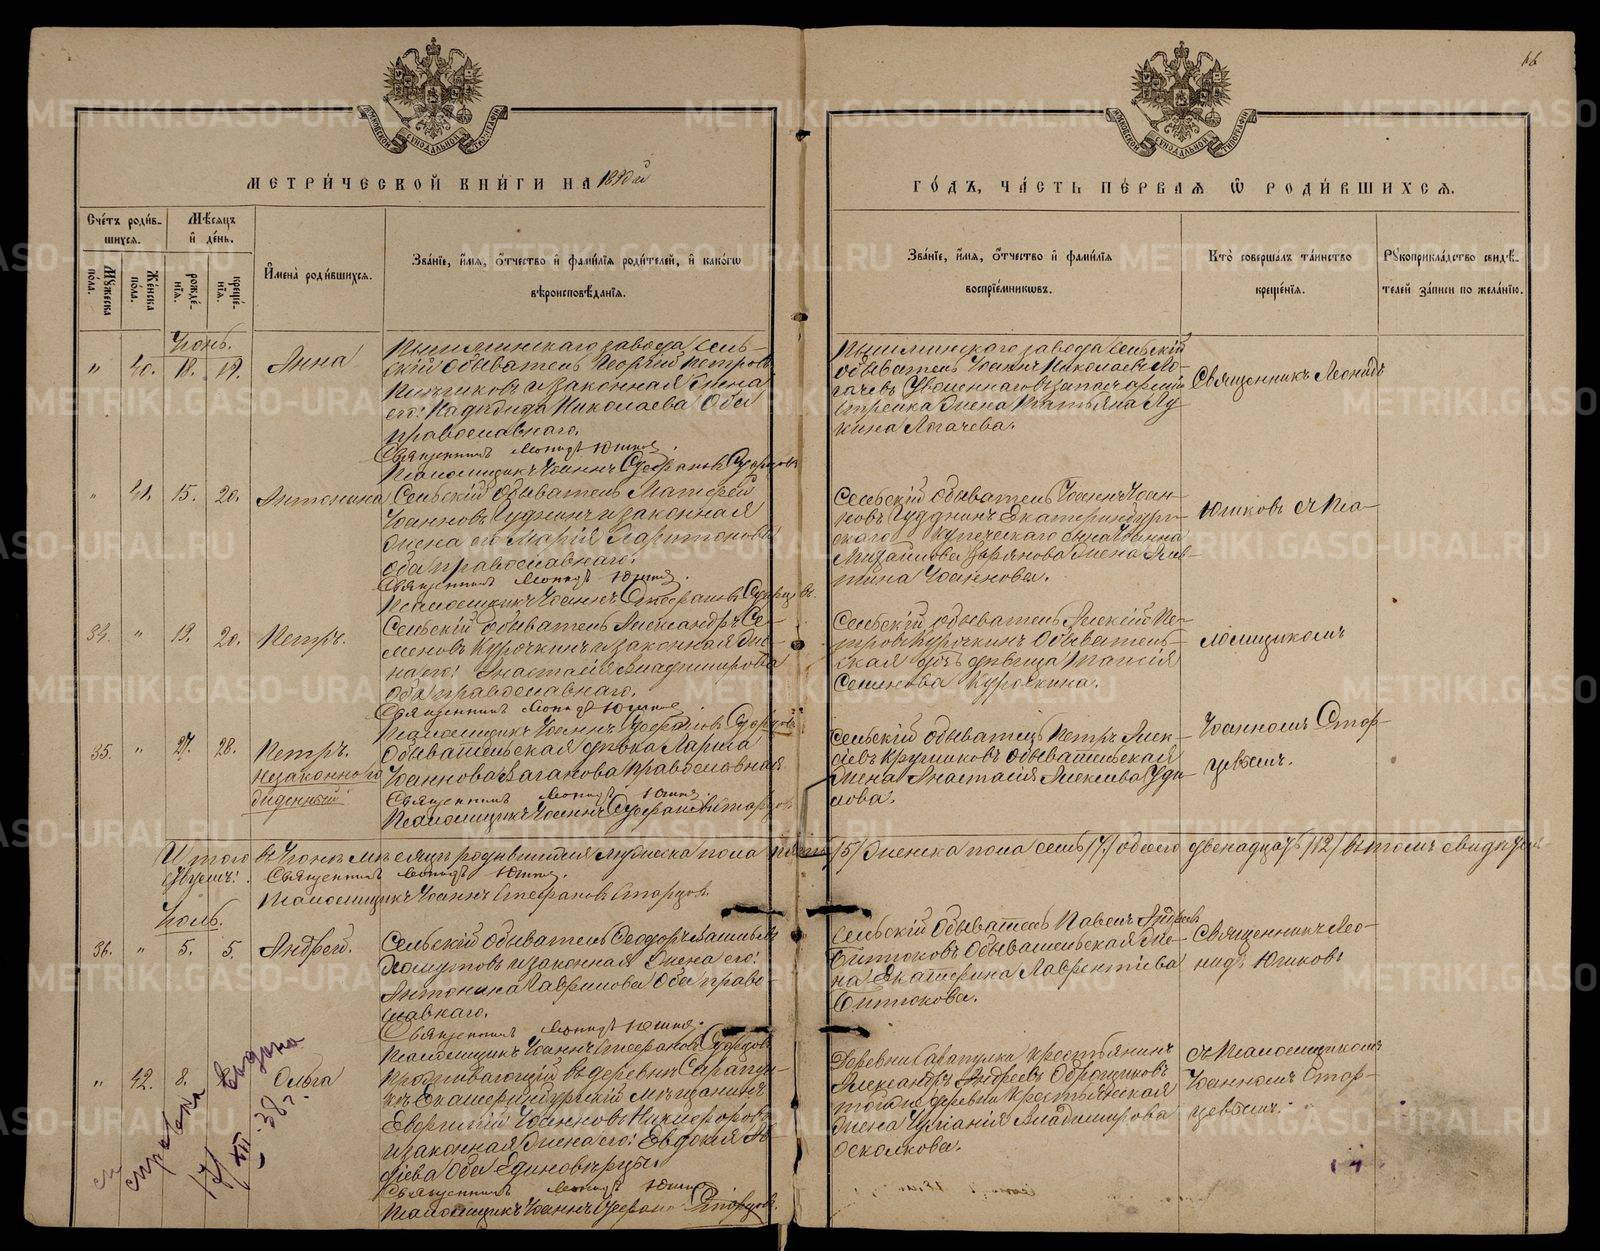 66
МОСКОВСКОЙ СѴНОДАЛЬНОЙ ТИПОГРАФІИ
МОСКОВСКОЙ СѴНОДАЛЬНОЙ ТИПОГРАФІИ
МЕТРИ́ЧЕСКОЙ КНИ́ГИ НА 18
ГО́ДЪ, ЧА́СТЬ ПЕ́РВАЯ Ѽ РОДИ́ВШИХСЯ.
Сче́тъ роди́в-
шихся.
Мѣ́сяцъ
и҆ де́нь.
Мꙋ́жеска пола.
Же́нска пола.
рожде́-нїя.
креще́-нїя.
И҆мена̀ роди́вшихся.
Зва́нїе, и҆́мя, ѻ҆́тчество и҆ фами́лїя роди́телей, и҆ како́гѡ
вѣроисповѣ́данїя.
Зва́нїе, и҆́мя, ѻ҆́тчество и҆ фами́лїя
воспрїе́мникѡвъ.
Кто̀ соверша́лъ та́инство
креще́нїя.
Рꙋкоприкла́дство свидѣ́-
телей за́писи по жела́нїю.
Іюнь.
" 40. 18. 19. Анна
Пышминскаго завода сель-
скій обыватель Георгій Петровъ
и законная жена
его: Надежда Николаева Оба
православнаго.
Священникъ Леонидъ Юшков.
Псаломщикъ Іоаннъ Стефановъ Старцовъ
Пышминскаго завода сельскій
обыватель Іоаннъ Николаевъ Ло-
гачевъ Уволеннаго въ запасъ арміи
стрелка жена Татьяна Лу-
кина Логачева.
Священникъ Леонидъ
" 41. 15. 20. Антонина
Сельскій обыватель
Іоанновъ и законная
жена его Марія Харитонова
оба православнаго.
Священникъ Леонидъ Юшков.
Псаломщикъ Іоаннъ Стефановъ Старцовъ.
Сельскій обыватель Іоаннъ Іоан-
новъ Екатеринбург-
скаго купеческаго сына Іоанна
Михаилова жена Але-
тина Іоаннова.
Юшковъ съ Пса-
34. " 19. 20. Петръ.
Сельскій обыватель Александръ Се-
меновъ Курочкинъ и законная же-
на его: Анастасія Владимирова
оба православнаго.
Священникъ Леонидъ Юшков.
Псаломщикъ Іоаннъ Стефановъ Старцовъ
Сельскій обыватель Алексій Пе-
тровъ Курочкинъ Обыватель-
ская дочь девица Таисія
Семенова Курочкина.
ломщикомъ
35. " 27. 28. Петръ.
незаконноро
жденный
Обывательская девка Лариса
Іоаннова Ваганова православная
Священникъ Леонидъ Юшков.
Псаломщикъ Іоаннъ Стефановъ Старцовъ
Сельскій обыватель Петръ Алек-
сеевъ Кругликовъ обывательская
жена Анастасія Алексеева Уди-
лова.
Іоанномъ Стар-
цевымъ.
Итого въ Іюне месяце родившихся мужеска пола пять /5/ женска пола семь /7/ обоего двенадцать /12/ въ томъ свидетель-
ствуемъ: Священникъ Леонидъ Юшков.
Псаломщикъ Іоаннъ Стефановъ Старцовъ.
Іюль.
36. " 5. 5. Андрей.
Сельскій обыватель Феодоръ Васильевъ
Хомутовъ и законная жена его:
Антонина Гаврилова Оба право-
славнаго.
Священникъ Леонидъ Юшков.
Псаломщикъ Іоаннъ Стефановъ Старцовъ
Сельскій обыватель Павелъ Андреевъ
Битюковъ Обывательская же-
на Екатерина Лаврентіева
Битюкова.
Священникъ Лео-
нидъ Юшковъ
" 42. 8. Ольга
Проживающій въ деревне Сарапул-
ке Екатеринбургскій мещанинъ
Евгеній Іоанновъ Никифоровъ
и законная жена его: Евдокія
Оба Единоверцы
Священникъ Леонидъ Юшков
Псаломщикъ Іоаннъ Стефановъ Старцовъ.
Деревни Сарапулки крестьянинъ
Александръ Андреевъ Оброщиковъ
той же деревни крестьянская
жена Іуліанія Владимирова
Осколкова.
съ Псаломщикомъ
Іоанномъ Стар-
цевымъ.
справка выдана
17/XII-38г.
METRIKI.GASO-URAL.RU